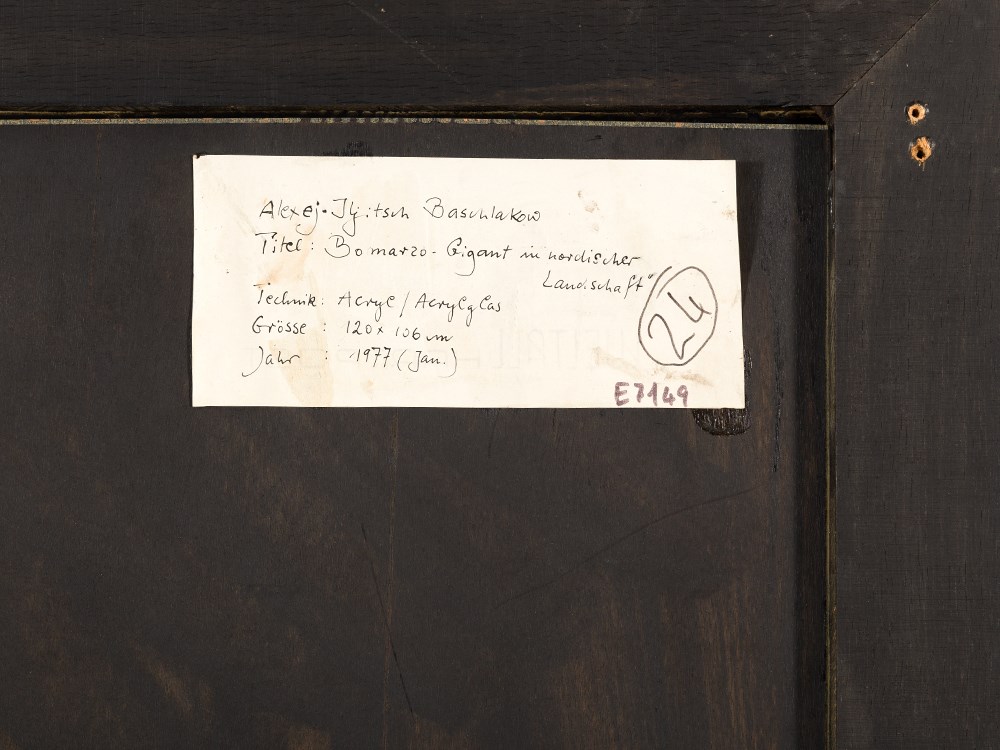 Alexej-Iljitsch Baschlakow
Titel: Bomarzo-Gigant in nordischer
Landschaft"
Technik: Acryl/Acrylglas
Grösse : 120 x 106 cm
Jahr : 1977 (Jan.)
24
E7149